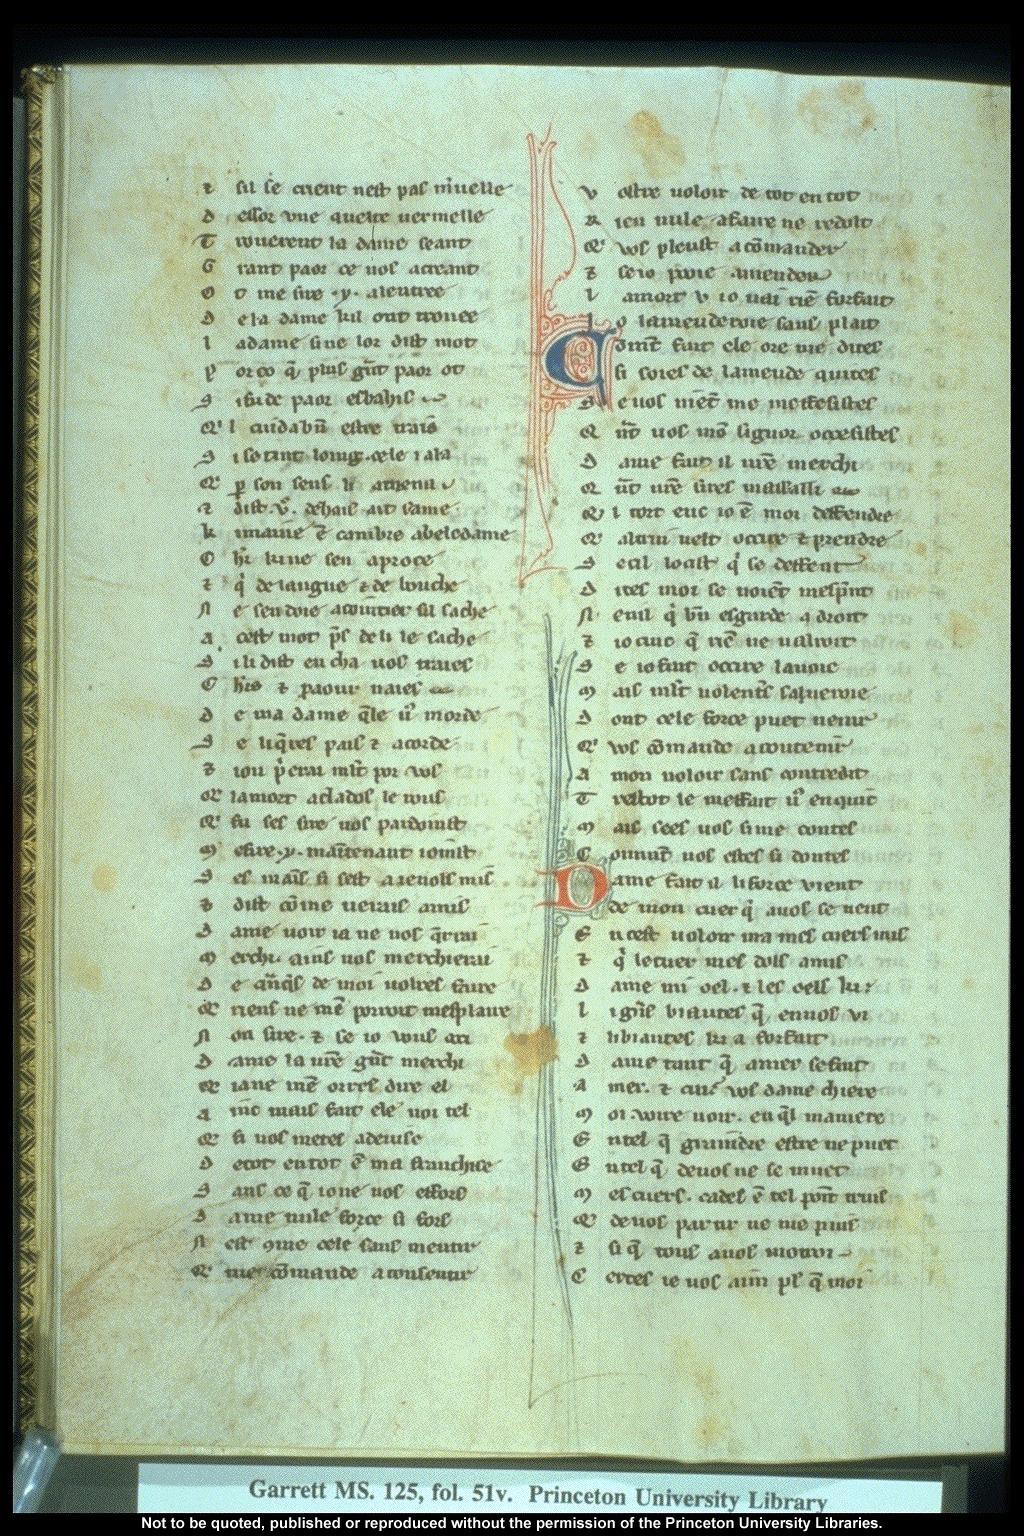 ⁊ sil se crient nest pas mͥuelle
D essor vne queute uermelle
T rouuerent la dame seant
G rant paor ce uos acreant
O t me sire .y. alentree
D e la dame kil ont trouee
L adame si ne lor dist mot
P or co q̄ plus gͣnt paor ot
S i fu de paor esbahis
Qͥ l cuida bn̄ estre trais
S i sestint loing cele i ala
Qͥ ꝑ son sens
⁊ dist v̄. dehais ait same
k i maine ē cambre abele dame
O
⁊ qͥ de langue ⁊ de bouche
N e sen doie acointier sil sache
A cest mot pͥs de li le sache
S i li dist en cha uos traies
C ⁊ paour naies
D e ma dame qͥle uͦ morde
S e li qͥres pais ⁊ acorde
⁊ iou pͥerai mlt̄ por vos
Qͥ la mort aclados le rous
Qͥ fu ses sire uos pardoinst
M esire .y. maītenant ioīnst
S es mais si sest a ienols mis
⁊ dist cōme uerais amis
D ame uoir ia ne uos qͥrrai
M erchi. ains uos merchierai
D e qͣnqͥs de moi uolres faire
Qͥ riens ne mē porroit mesplaire
N on sire. ⁊ se io vous oci
D ame la ur̄e gͣnt merchi
Qͥ ia ne mē orres dire el
A inc mais fait ele noi tel
Qͥ si uos metes adeuise
D e tot en tot ē ma franchise
S ans ce q̄ io ne uos esfors
D ame nule force si fors
N est ꝯme cele sans mentir
Qͥ me cōmande a consentir
V ostre uoloir de tot en tot
R ien nule afaire ne redolt
Qͥ vos pleust a cōmander
⁊ se io pooie amender
L a mort v io nai riē forfait
I o lamenderoie sans plait
Cōmt̄ fait ele ore me dites
si soies de lamende quites
S e uos me mesfesistes
Q nͣt uos mō signor occesistes
D ame fait il ur̄e merchi
Q nͣt ur̄e sires massalli
Qͥ l tort euc io ē moi desfendre
Qͥ altrui uelt ocirre ⁊ prendre
S e cil locist qͥ se desfent
D ites moi se noiēt mespͥnt
N enil qͥ bn̄ esgarde a droit
⁊ io cuic q̄ riē ne ualroit
S e io faire occire lauoie
M ais mlt̄ uolentͥs saͬueroie
D ont cele force puet uenir
Qͥ vos cōmande a consentir
A mon uoloir sans contredit
T restot le mesfait uͦ en quit
M ais sees uos si me contes
C omment uos estes si dontes
Dame fait il li force vient
de mon cuer qͥ a uos se tient
E n cest uoloir ma mes cuers mis
⁊ qͥ le cuer mes dols amis
D ame mi oel. ⁊ les oels ki?
L i gͣns biautes q̄ en uos vi
⁊ li biautes ki a forfait
D ame tant q̄ amer se fait
A mer. ⁊ cui? vos dame chiere
M oi. voire uoir. en qͥl maniere
E n tel q̄ graindre estre ne puet
E n tel q̄ de uos ne se muet
M es cuers.
Qͥ de uos partir ne me puis
⁊ si q̄ tous a uos
C ertes ie uos aim pl̄s q̄ moi
Garrett MS. 125, fol. 51v. Princeton University Library
Not to be quoted, published or reproduced without the permission of the Princeton University Libraries.